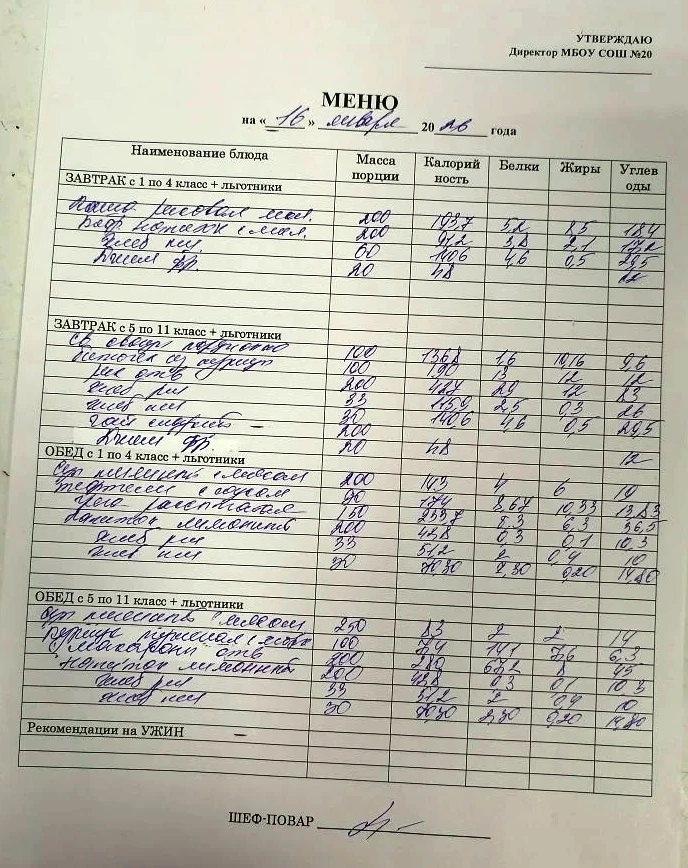 УТВЕРЖДАЮ
Директор МБОУ СОШ №20
МЕНЮ
на « 16 » января 20 26 года
Наименование блюда Масса порции Калорий ность Белки Жиры Углев оды
ЗАВТРАК с 1 по 4 класс + льготники
Каша рисовая мол. 200 193,7 5,2 8,5 18,4
Коф напиток с мол. 200 91,2 3,8 2,1
Хлеб пш. 60 140,6 4,6 0,5 29,5
Джем фр. 20 48
ЗАВТРАК с 5 по 11 класс + льготники
св овощи порционно 100 136,8 1,6 10,16 9,6
из курицы 100 190 13 12 12
рис отв 200 12
хлеб рж 33 2,5 0,3 26
хлеб пш 30 140,6 4,6 0,5 29,5
чай 200
Джем фр. 20 48 12
ОБЕД с 1 по 4 класс + льготники
суп с мясом 200 143 4 6 10
тефтели с соусом 90 174 8,67 10,33 13,83
греч рассыпчатая 150 233,7 6,3 36,5
напиток лимонный 200 42,8 0,3 0,1 10,3
хлеб рж 33 51,2 2 0,4 10
хлеб пш 30 70,30 2,30 0,20 14,80
ОБЕД с 5 по 11 класс + льготники
суп с мясом 250 83 2 2 14
курица 100 14,1 7,6 6,3
макароны отв 200 280 8 45
напиток лимонный 200 42,8 0,3 0,1 10,3
хлеб рж 33 51,2 2 0,4 10
хлеб пш 30 70,30 2,30 0,20 14,80
Рекомендации на УЖИН –
ШЕФ-ПОВАР